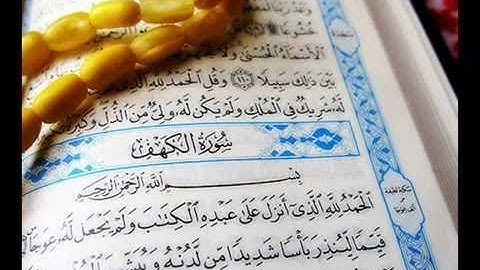 خُشُوعًا
الْأَسْمَاءُ الْحُسْنَىٰ وَلَا
بَيْنَ ذَٰلِكَ سَبِيلًا ١١٠ وَقُلِ الْحَمْدُ لِلَّهِ الَّذِي
لَّهُ شَرِيكٌ فِي الْمُلْكِ وَلَمْ يَكُن لَّهُ وَلِيٌّ مِّنَ الذُّلِّ وَكَبِّرْهُ
سُورَةُ الْكَهْفِ
بِسْمِ اللَّهِ الرَّحْمَٰنِ الرَّحِيمِ
الْحَمْدُ لِلَّهِ الَّذِي أَنزَلَ عَلَىٰ عَبْدِهِ الْكِتَابَ وَلَمْ يَجْعَل لَّهُ عِوَجَا
قَيِّمًا لِّيُنذِرَ بَأْسًا شَدِيدًا مِّن لَّدُنْهُ وَيُبَشِّرَ